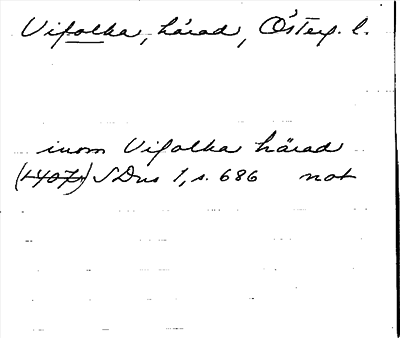 Vifolka, härad, Österg. l.
inom Vifolka härad
(1407) SDns 1, s. 686 not